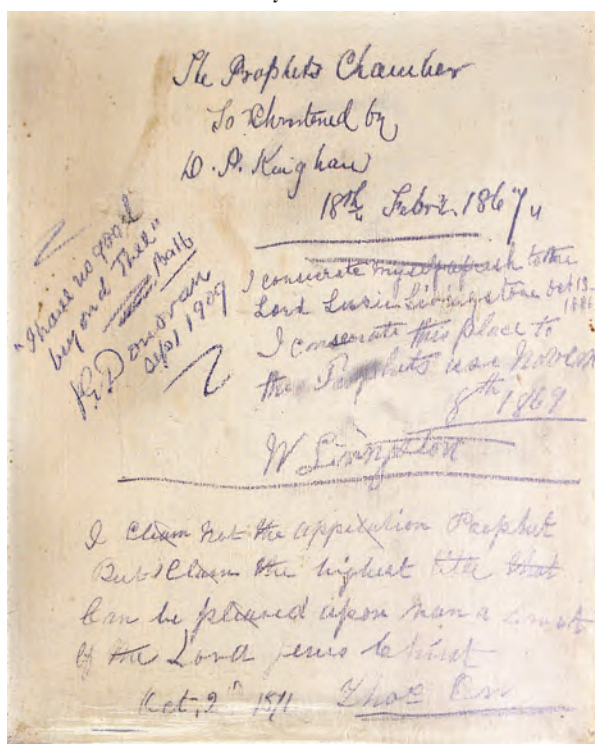 The Prophets Chamber
So Christened by
D. P. Kinghan
18th Febr. 1867
"I have no good
beyond Thee"
Balb
R. E. Donovan
Sept 1909
I consecrate myself afresh to the
Lord Susie Livingstone Oct 13-
1886
I consecrate this place to
the Prophets use Novem
8th 1869
W Livingston
I Claim not the appilation Prophet
But I Claim the highest title that
Can be placed upon man a
of the Lord Jesus Christ
Oct, 2n 1871 Thos Orr